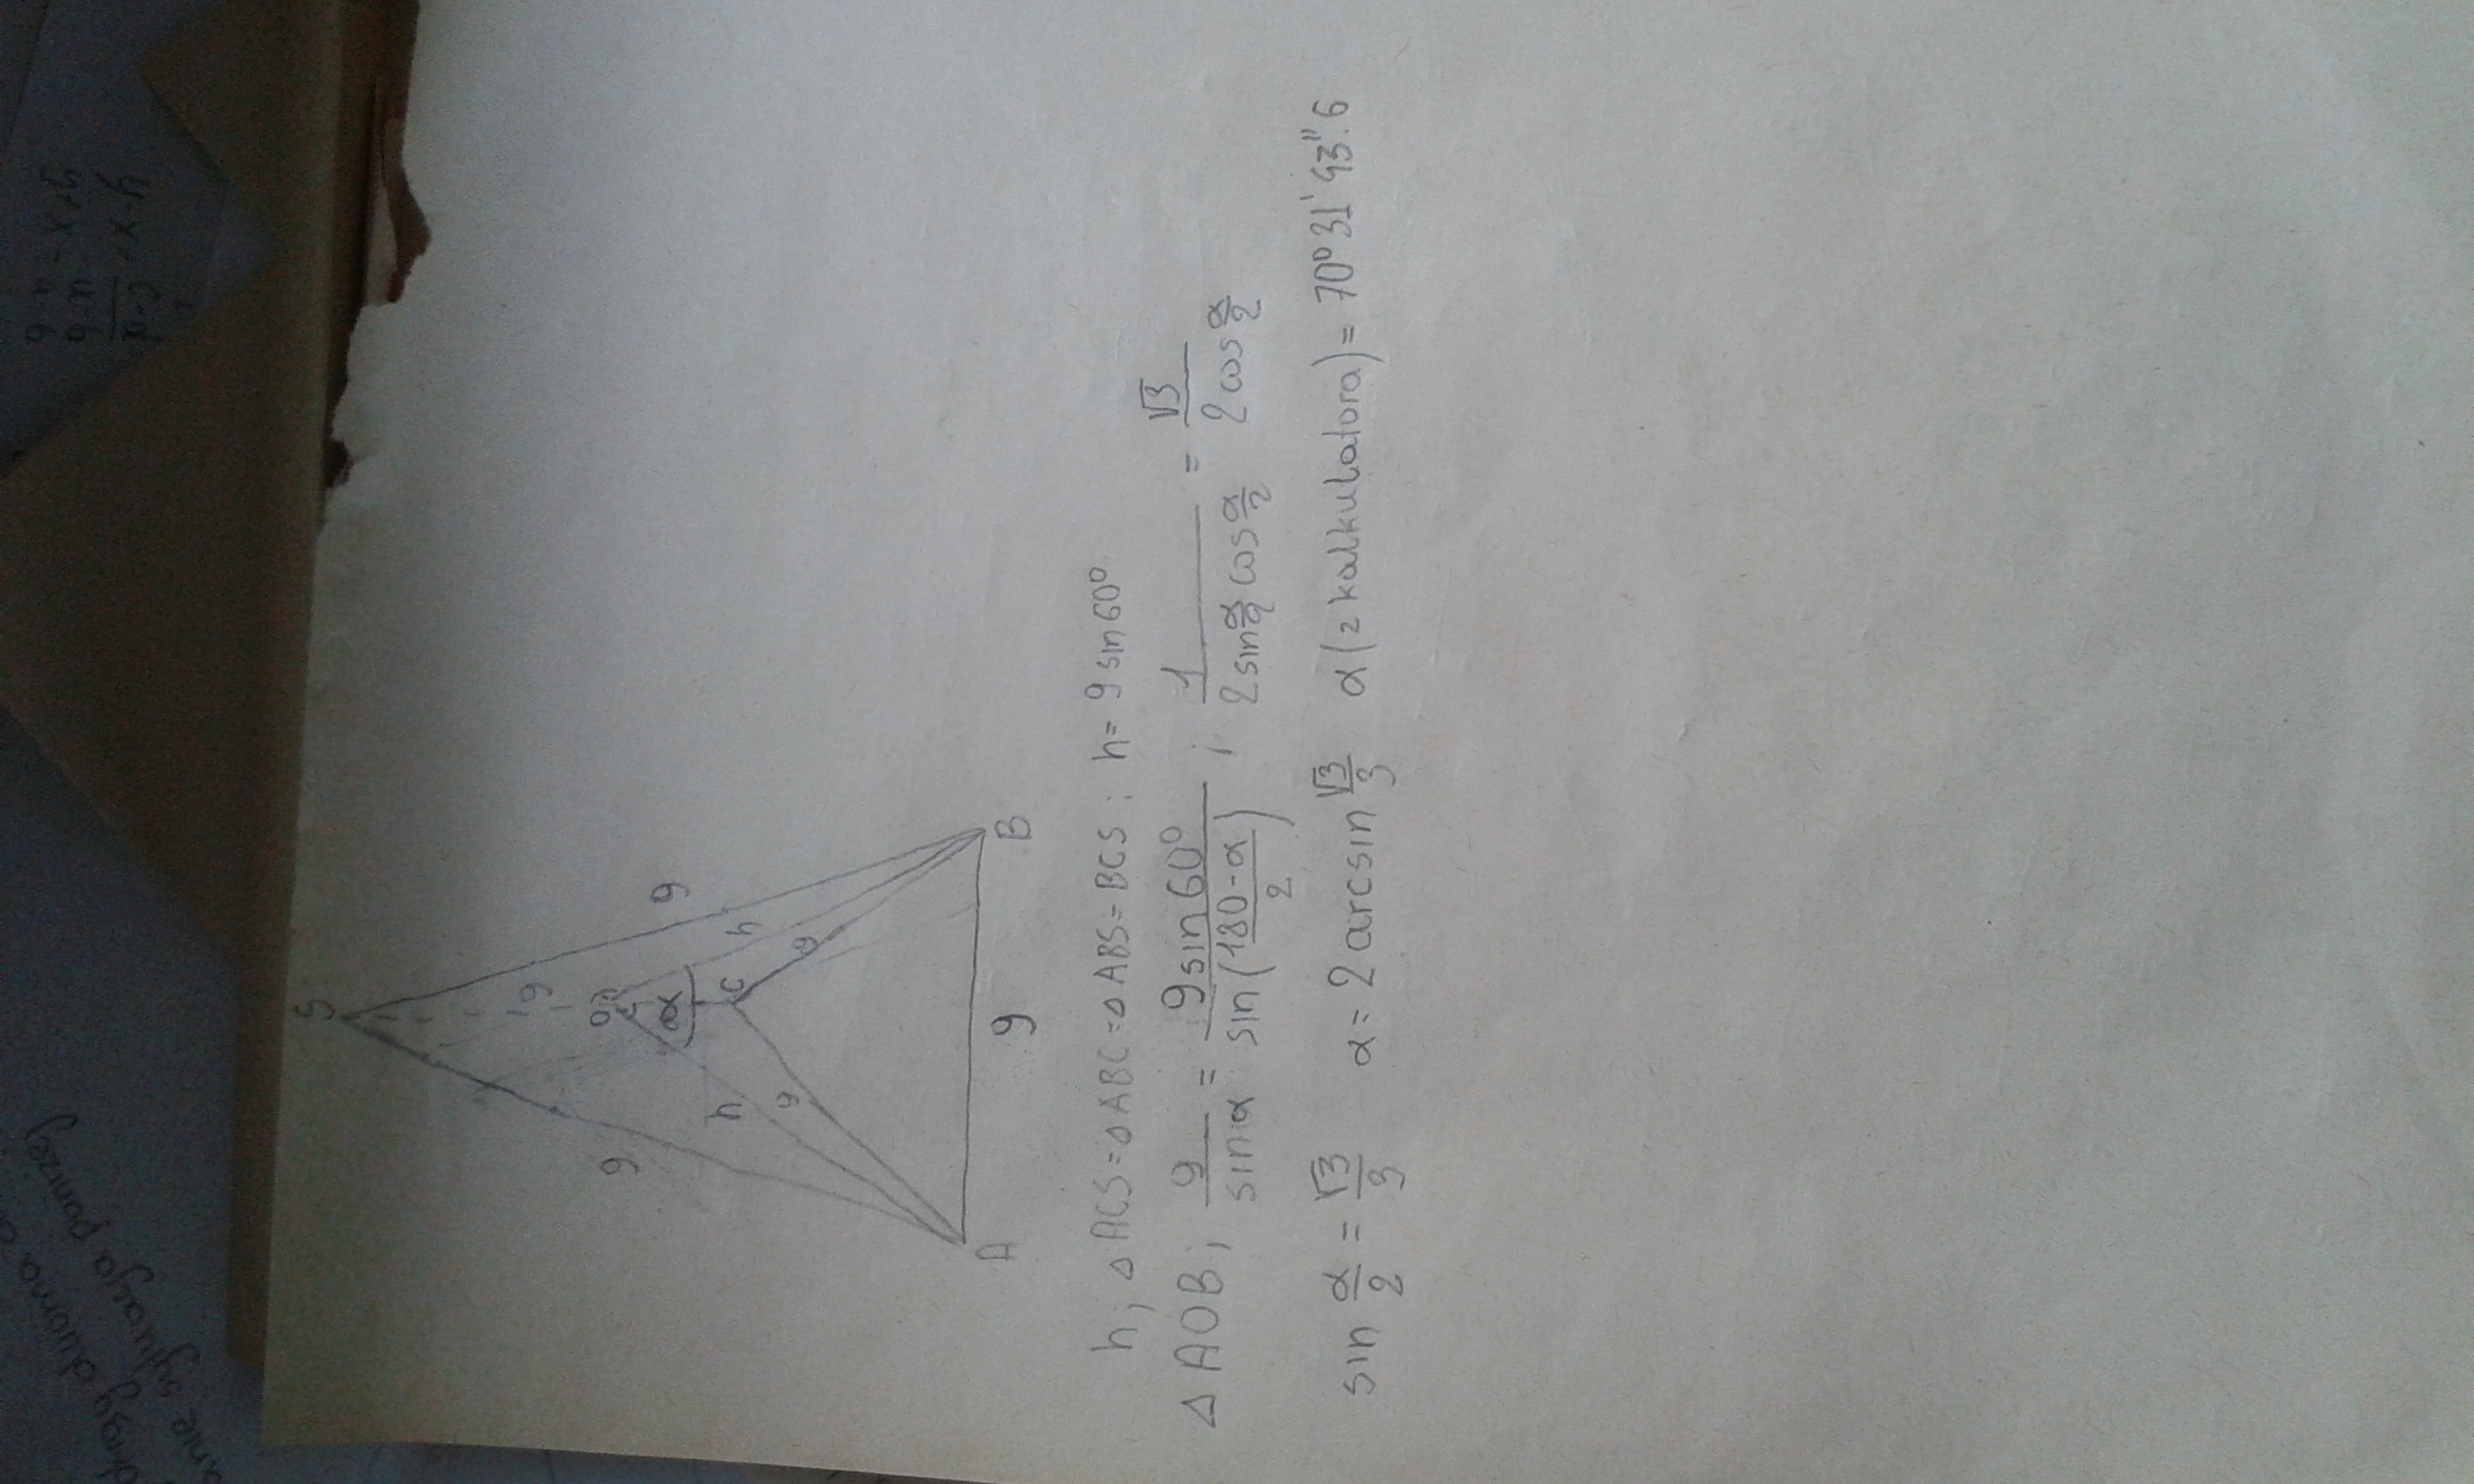 S
9
9
9
O
α
h
h
C
9
9
A
9
B
h; △ACS=△ABC=△ABS=BCS: h=9sin60°
△AOB; 9/sinα = 9sin60°/sin(180-α/2) ; 1/2sin α/2 cos α/2 = √3/2cos α/2
sin α/2 = √3/3 α=2arcsin √3/3 α(z kalkulatora)=70°31'43".6